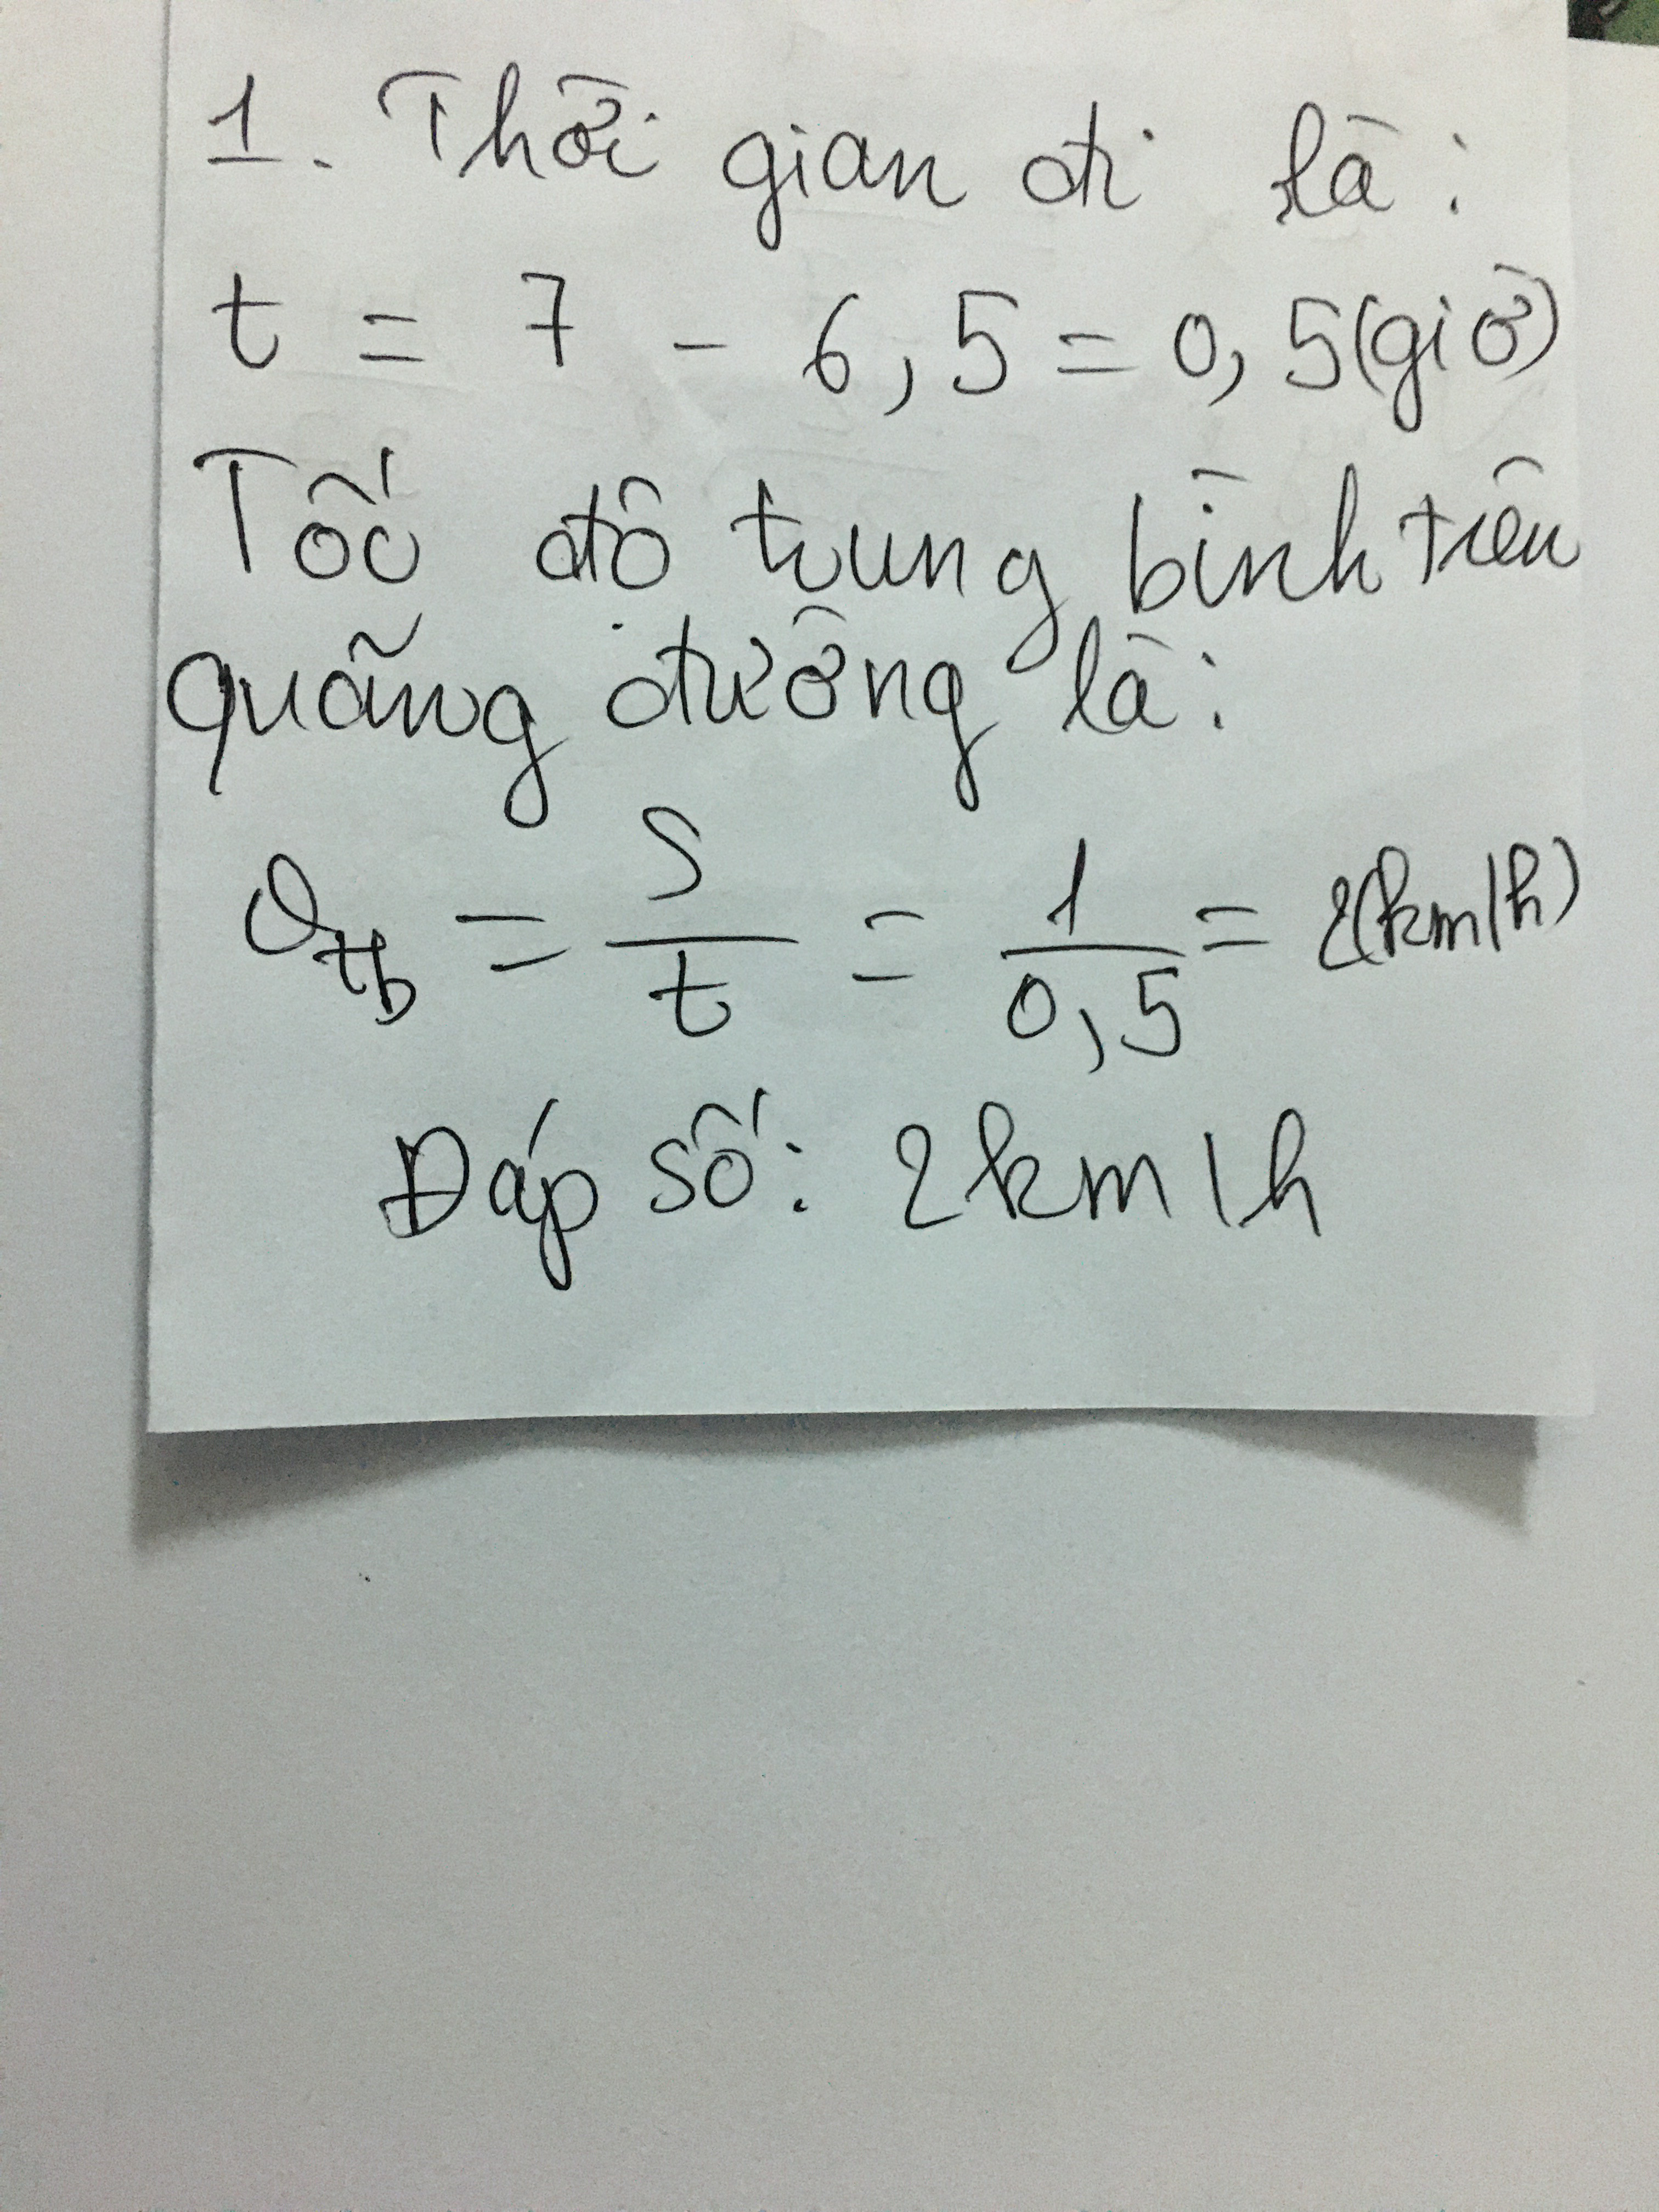 1. Thời gian đi là:
t = 7 - 6,5 = 0,5(giờ)
Tốc độ trung bình trên
quãng đường là:
v_tb = S/t = 1/0,5 = 2(km/h)
Đáp số: 2km/h